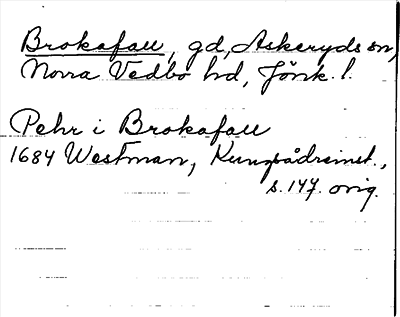 Brokafall, gd, Askeryds sn,
Norra Vedbo hd, Jönk. l.
Pehr i Brokafall
1684 Westman, Kungsådreinst.,
s. 147. orig.